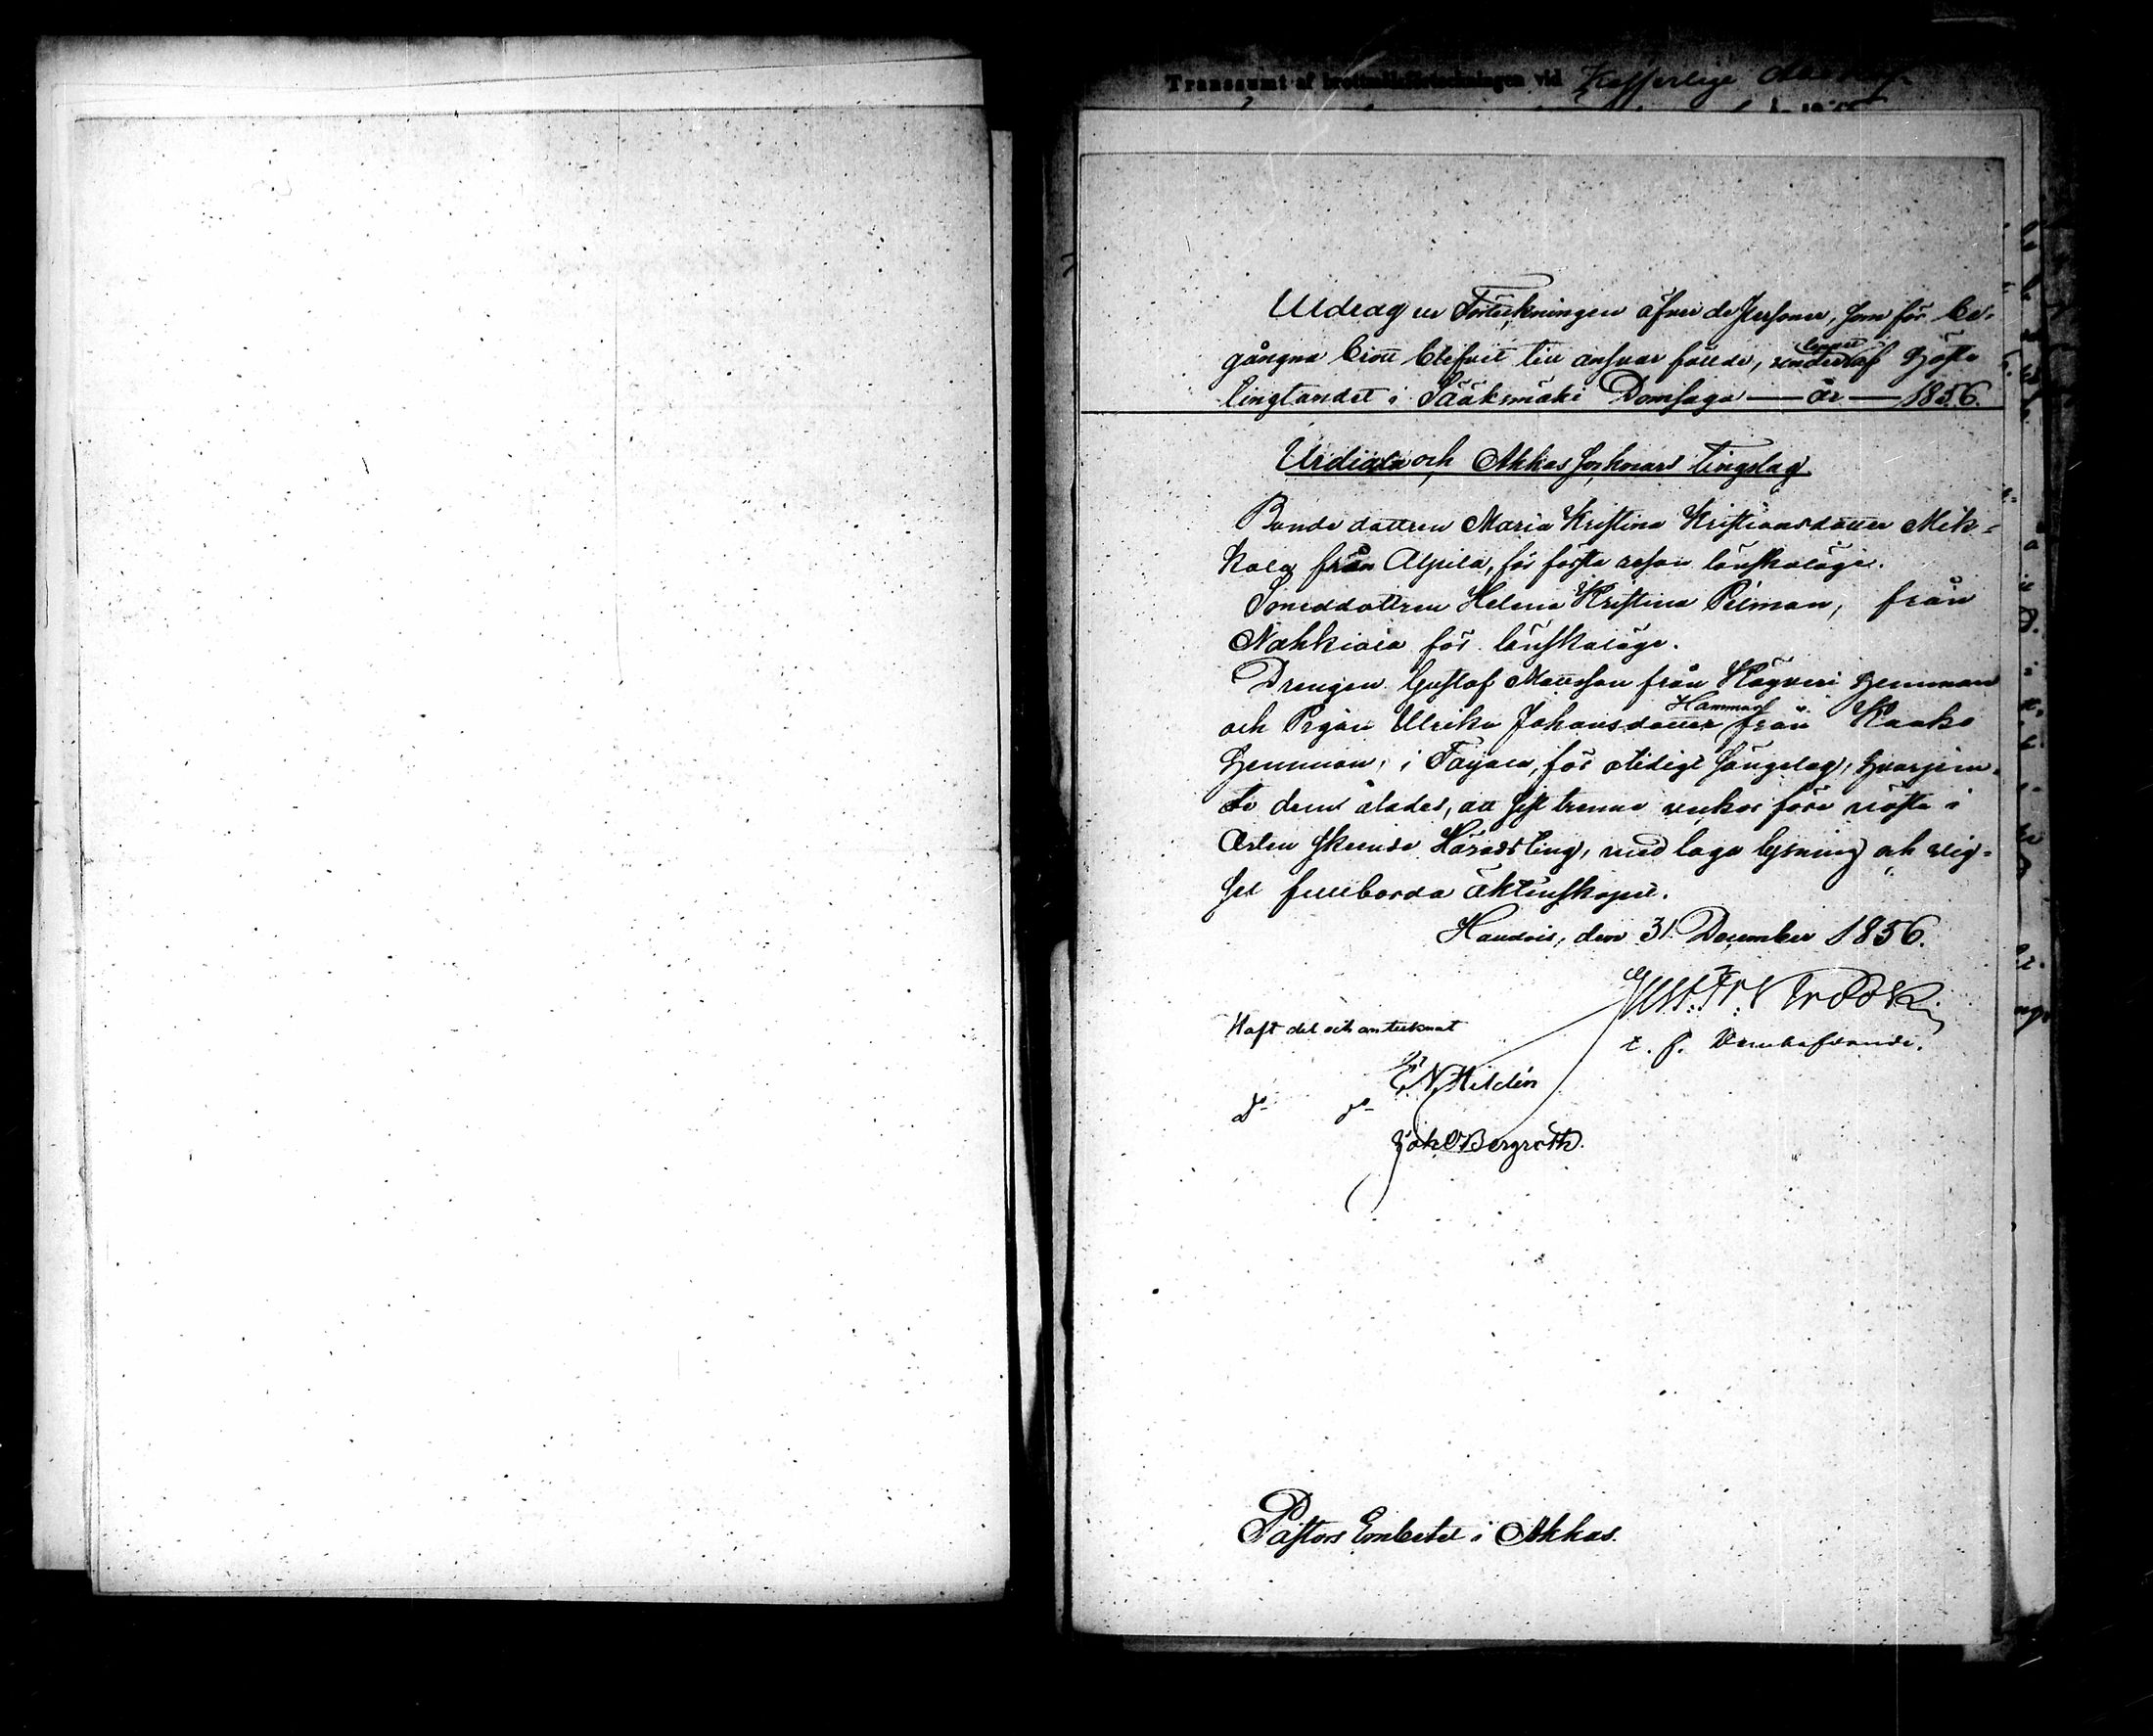 Transsumt af brottmålsförteckningen vid Kejserlige Åbo
Utdrag ur Förteckningen öfver de Personer, som för be-
gångna brott blifvit till ansvar fällde, under loppet af Höste
tingtandet i Sääksmäki Domsaga — år — 1856.
Urdiala och Akkas Soknars Tingslag
Bonde dottren Maria Kristina Kristiansdotter Mik-
kola från Alpila, för första resan lönskaläge.
Smeddottren Helena Kristina Pilman, från
Nahkiala för lönskaläge.
Drengen Gustaf Mattsson från Häyveri hemman
Hammar
och Pigan Ulrika Johansdotter från Kaako
hemman, i Toijala, för otidigt sängelag, hvarjem-
te dem ålades, att sist trenne veckor före nästa i
Orten skeende Häradsting, med laga lysning och vig-
sel fullborda äktenskapet.
Handois, den 31 December 1856.
t. f. Domhafvande.
Haft del och antecknat
E. N. Hildén
d:o d:o
Joh Bergroth.
Pastors Embetet i Akkas.